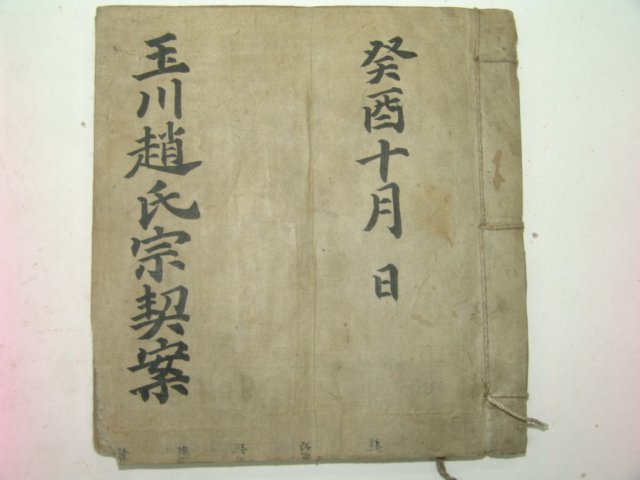 癸酉十月 日
玉川趙氏宗契案